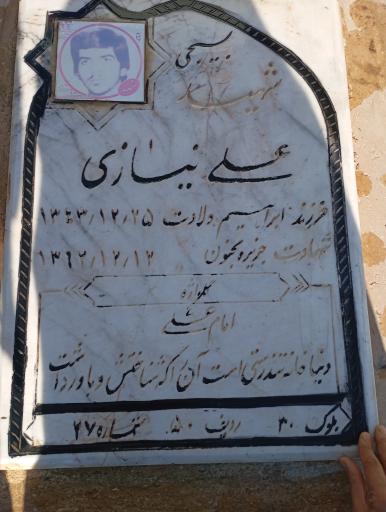 بسیجی
شهید
علی نیازی
فرزند ابراهیم ولادت ۱۳۴۳/۱۲/۲۵
شهادت جزیره مجنون ۱۳۶۲/۱۲/۱۲
گلواژه
امام علی
دنیا خانه تندرستی است آن را که شناختش و باور داشت
بلوک ۳۰ ردیف ۵۰ شماره ۲۷